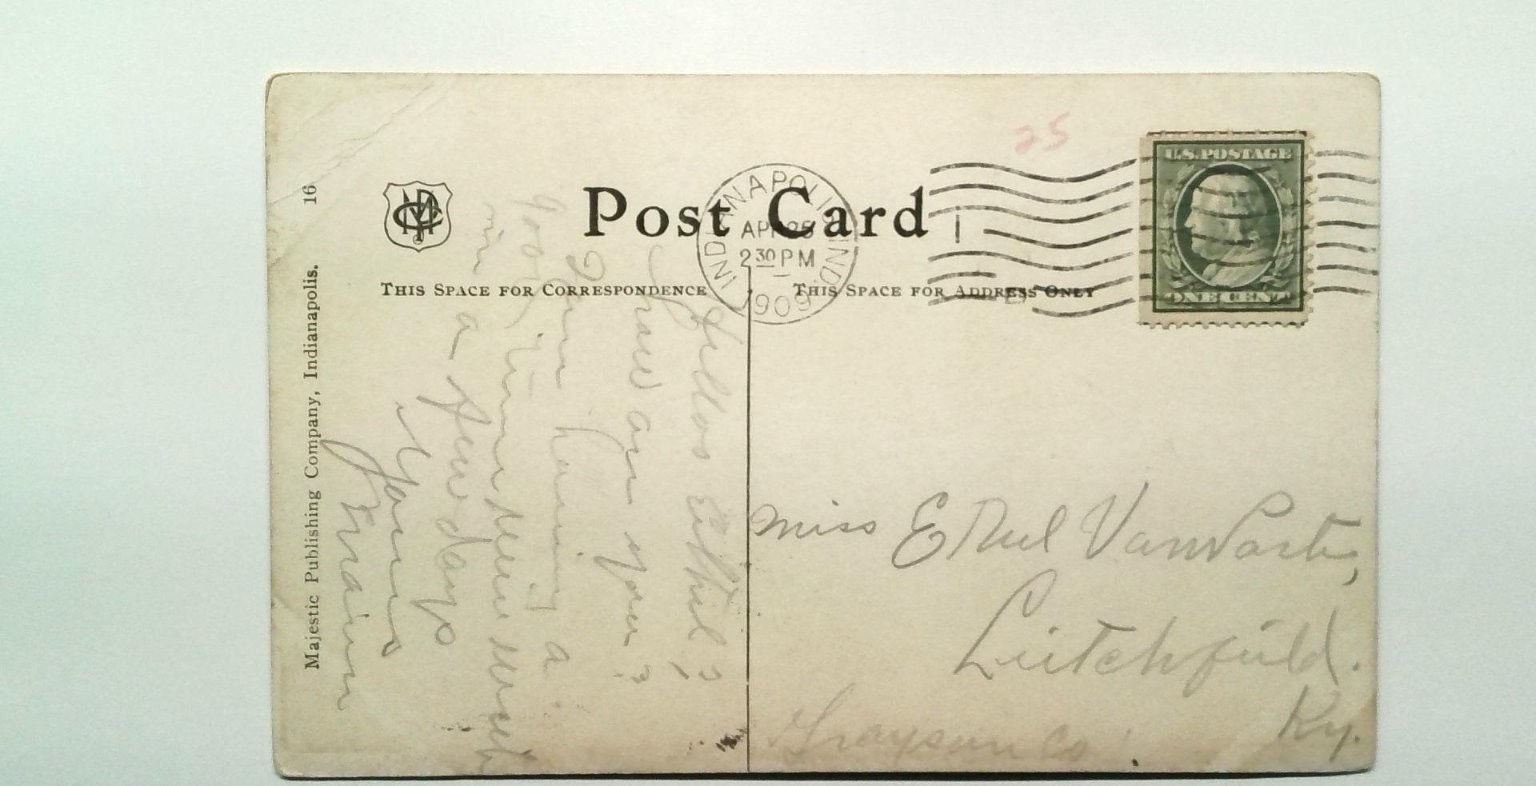 Post Card
THIS SPACE FOR CORRESPONDENCE
THIS SPACE FOR ADDRESS ONLY
INDIANAPOLIS, IND.
APR 25
2 30 PM
1909
25
U.S. POSTAGE
ONE CENT
Hellos Ethel;
how are you?
I am having a
good time
in a few days
Yours
Miss Ethel Van
Leitchfield.
Ky.
Grayson Co
Majestic Publishing Company, Indianapolis. 16